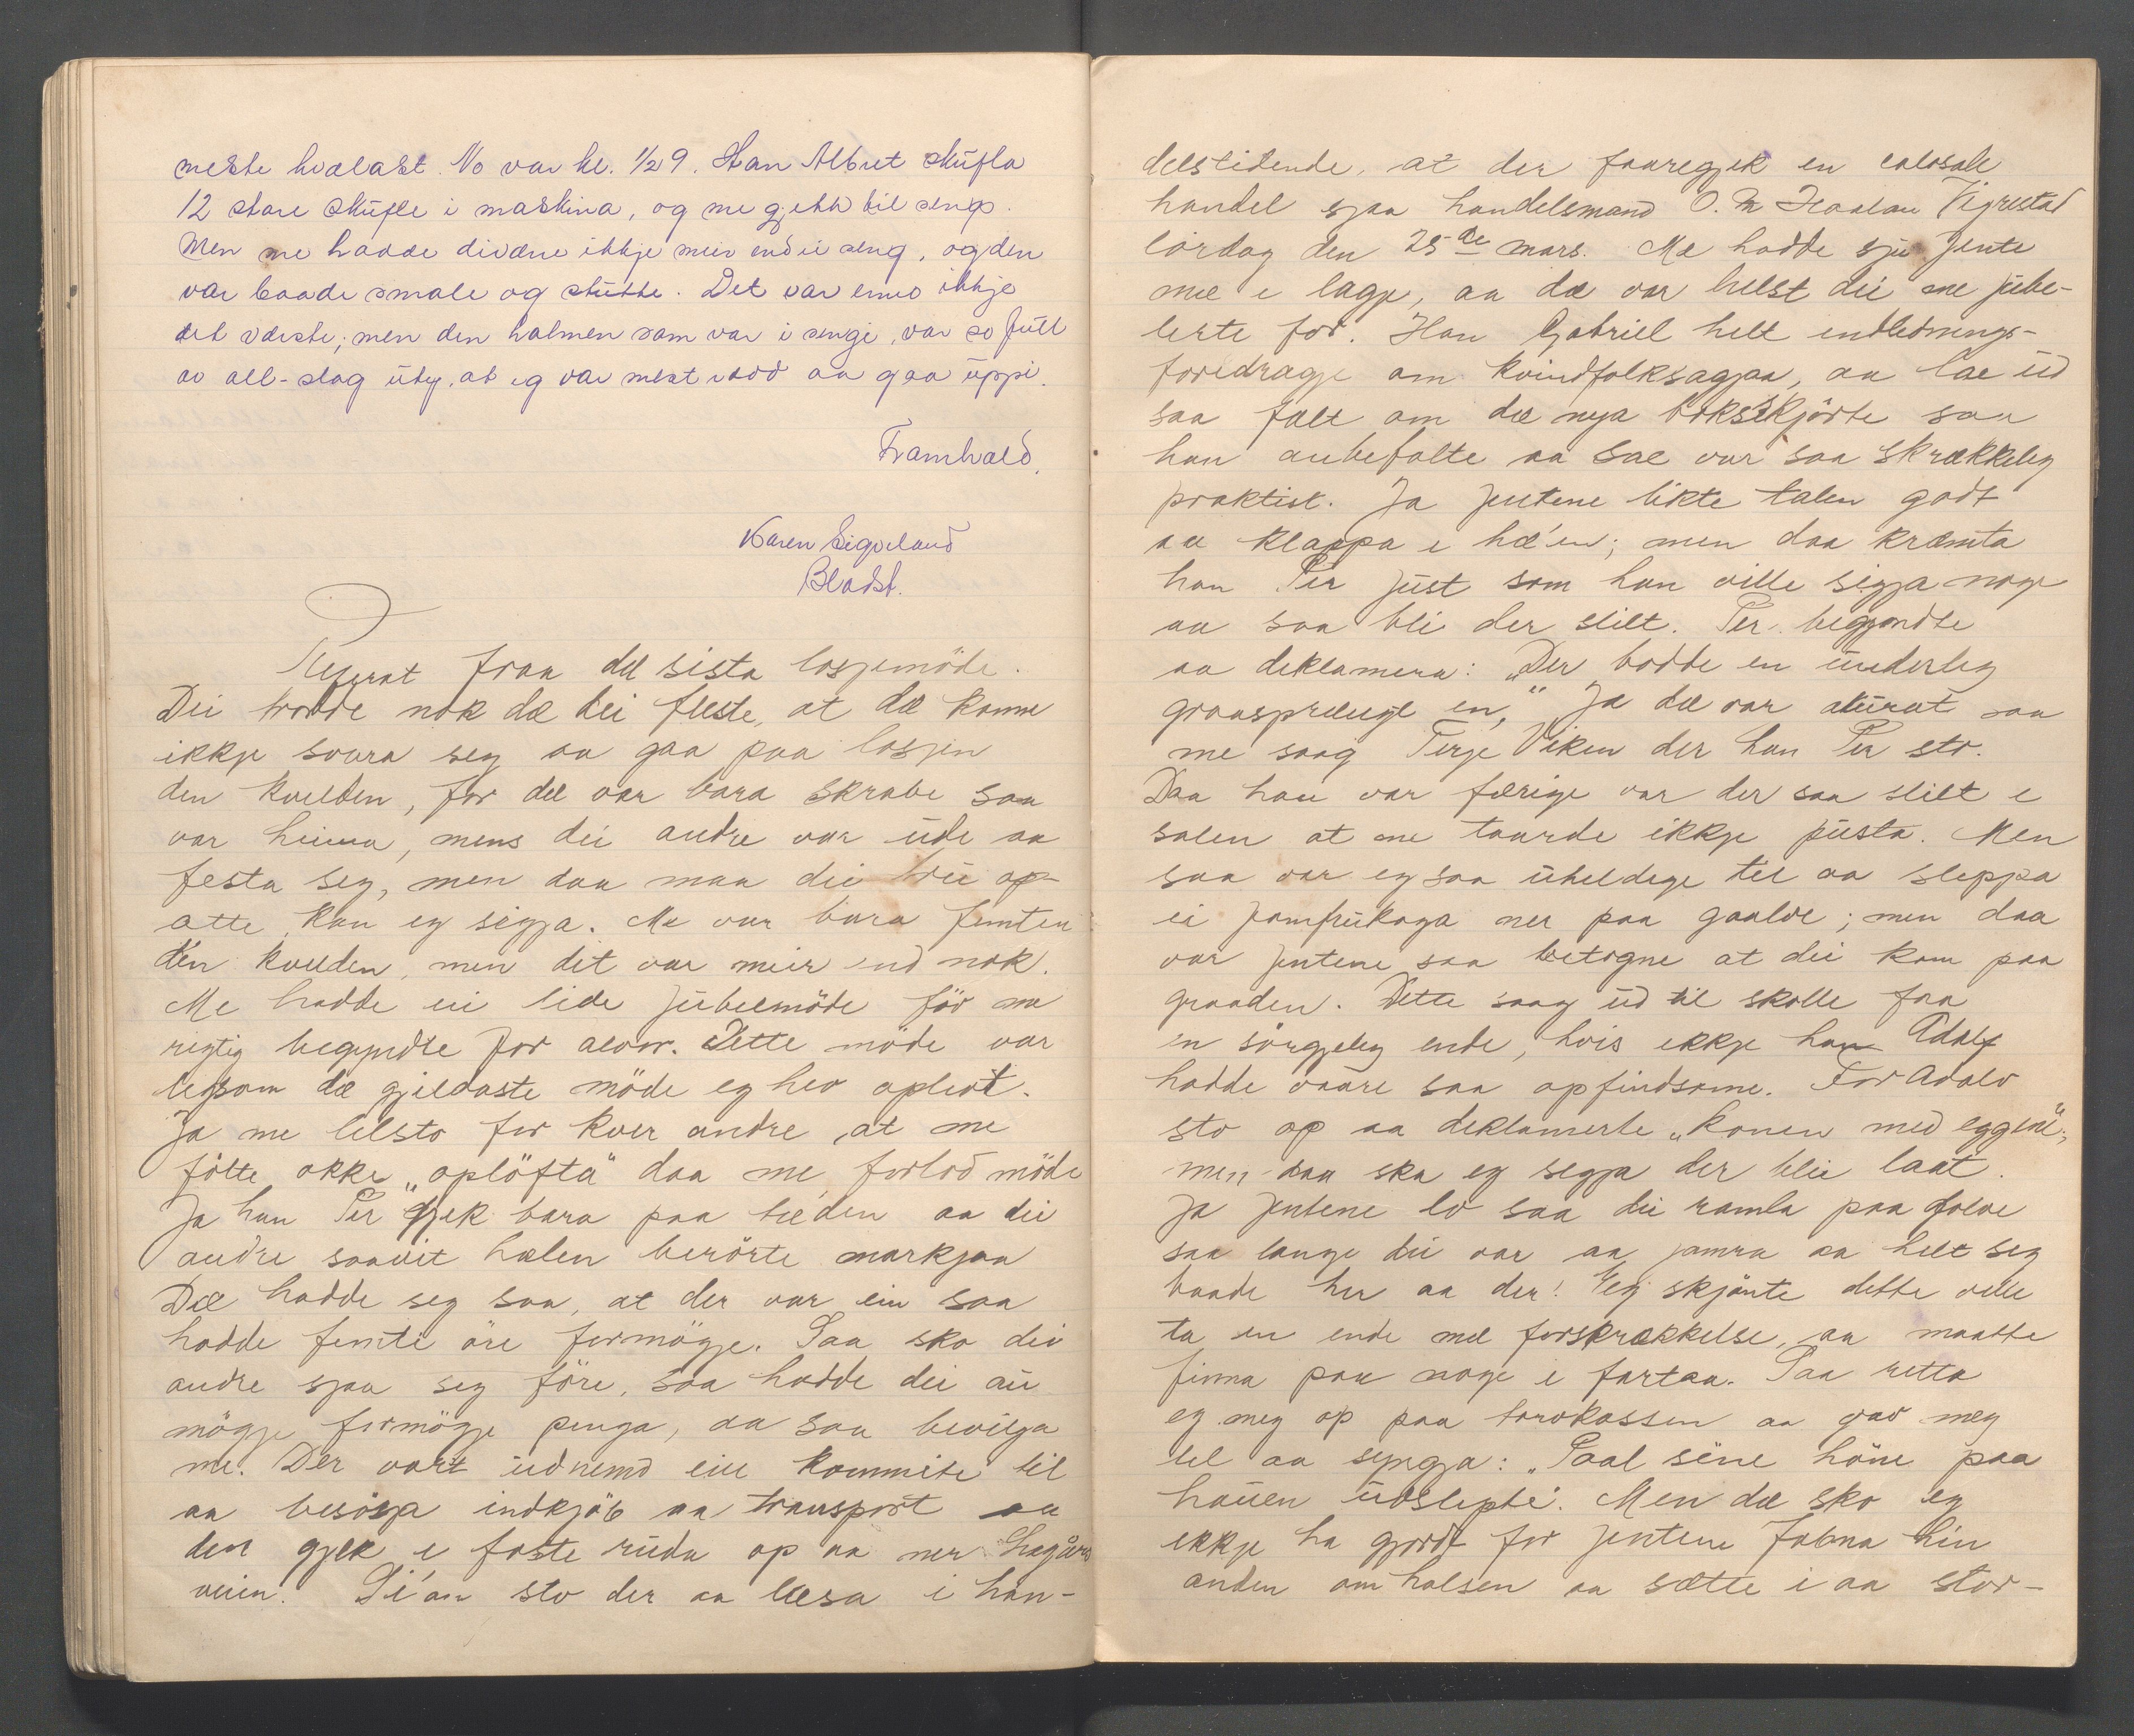 meste hvælast. No var kl. ½ 9. Han Albret skufla
12 store skufle i maskina, og me gjekk til sengs.
Men me hadde divære ikkje meir end ei seng, og den
var baade smale og stutte. Det var enno ikkje
det værste; men den halmen som var i sengi, var so full
av all-slag utøy, at eg var mest rædd aa gaa uppi.
Framhald.
Karen Sigveland
Bladst.
Referat fraa dæ sista losjemøde.
Dei trodde nok dæ dei fleste, at dæ kunne
ikkje svara seg aa gaa paa losjen
den kvelden, for dæ var bara skrabe saa
var heima, mens dei andre var ude aa
festa seg, men daa maa dei tru op
atte, kan eg sigja. Me var bara femten
den kvelden, men dit var meir end nok.
Me hadde ein lide jubelmøde før me
rigtig begyndte for alvor. Dette møde var
liksom dæ gjildaste møde eg hev oplevt.
Ja me lelsto for kver andre, at me
følte okke „opløfta" daa me forlod møde
Ja han Per gjek bara paa tæden aa dei
andre saavit hælen berørte markjaa
Dæ hadde seg saa, at der var ein saa
hadde femti øre formøgje. Saa sko dei
andre sjaa seg føre, saa hadde dei au
møgje formøgje penga, aa saa bevilga
me. Der vart udnemd ein kommite til
aa besørja indkjøb aa transport aa
den gjek i faste rudu op aa ner
veien. Si'an sto der aa læsa i han-
delstidende, at der foregjek en colosale
handel sjaa handelsmand O. M Vigrestad
lørdag den 25de mars. Me hadde sju jente
mæ i lagje, aa dæ var helst dei me jube-
lerte for. Han Gabriel helt endlednings-
foredragje om kvindfolksagjaa, aa lae ud
saa fælt om dæ nya bokseskjørte saa
han anbefalte aa sae var saa skrækkeleg
praktisk. Ja jentene likte talen godt
aa klappa i hæ'en; men daa kræmta
han Per just som han ville sigja noge
aa saa blei der stilt. Per begjyndte
aa deklamera: „Der bodde en underleg
graasprængt en," Ja dæ var akurat saa
me saag Terje Viken der han Per sto.
Daa han var færige var der saa stilt i
salen at me taarde ikkje pusta. Men
saa var eg saa uheldege til aa sleppa
ei jomfrukaga ner paa gaalve; men daa
var jentene saa betogne at dei kom paa
graaden. Dette saag ud til skolle faa
en sørgjeleg ende, hvis ikkje han Adolf
hadde vaare saa opfindsome. For Adolv
sto op aa deklamerte „konen med eggene";
men daa ska eg segja der blei laat.
Ja jentene lo saa dei ramla paa golve
saa lange dei var aa jamra aa helt seg
baade her aa der! Eg skjønte dette ville
ta en ende mæ forskrækkelse, aa maatte
finna paa noge i fartaa. Saa retta
eg meg op paa torvkassen aa gav meg
tel aa syngja: „Paal sine høne paa
hauen udslepte". Men dæ sko eg
ikkje ha gjordt for jentene fabna hin
anden om halsen aa sætte i aa stor-